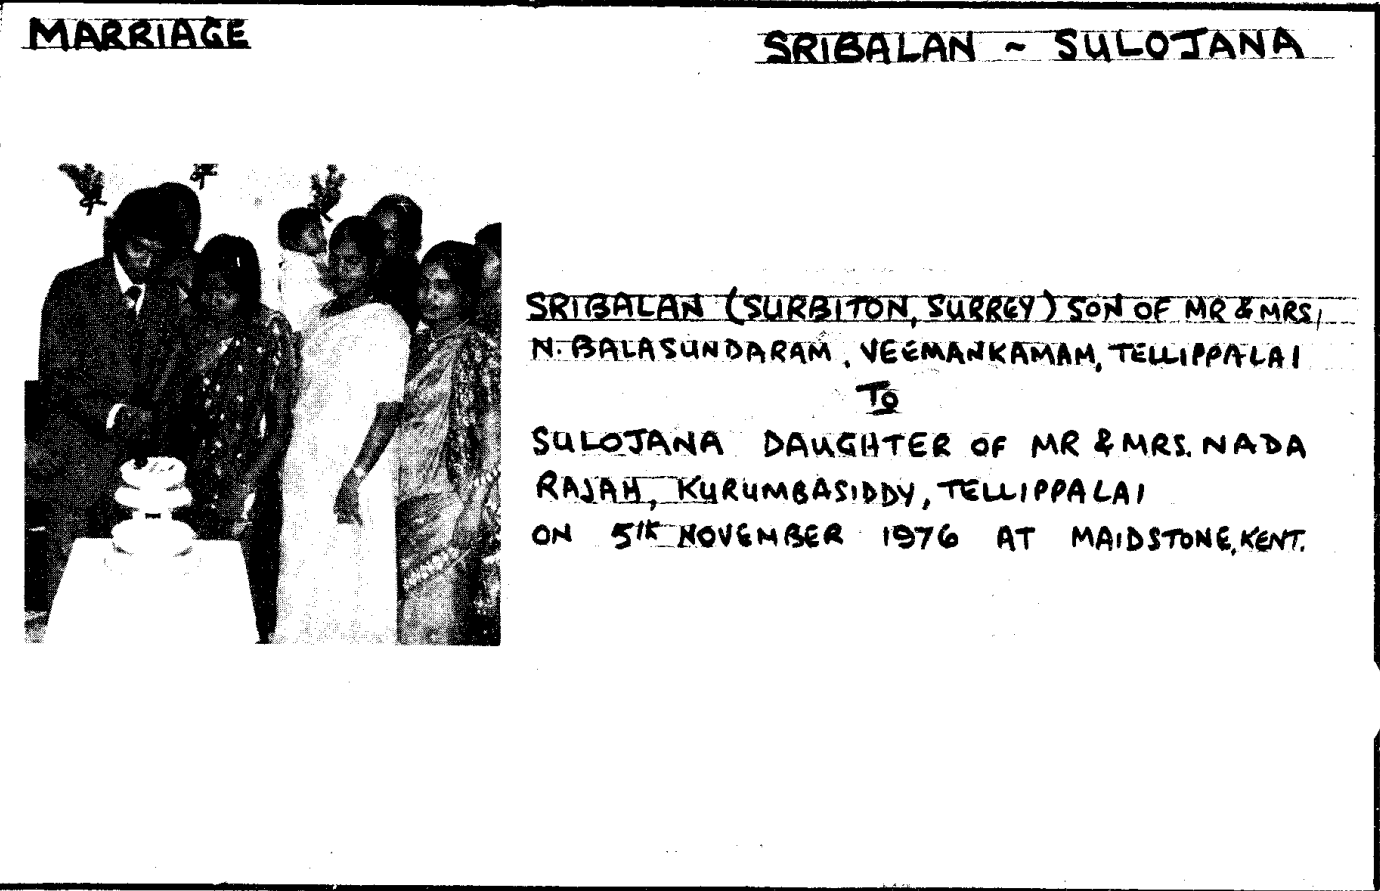 MARRIAGE
SRIBALAN ~ SULOJANA
SRIBALAN (SURBITON, SURREY) SON OF MR & MRS,
N. BALASUNDARAM, VEEMANKAMAM, TELLIPPALAI
TO
SULOJANA DAUGHTER OF MR & MRS. NADA
RAJAH, KURUMBASIDDY, TELLIPPALAI
ON 5TH NOVEMBER 1976 AT MAIDSTONE, KENT.